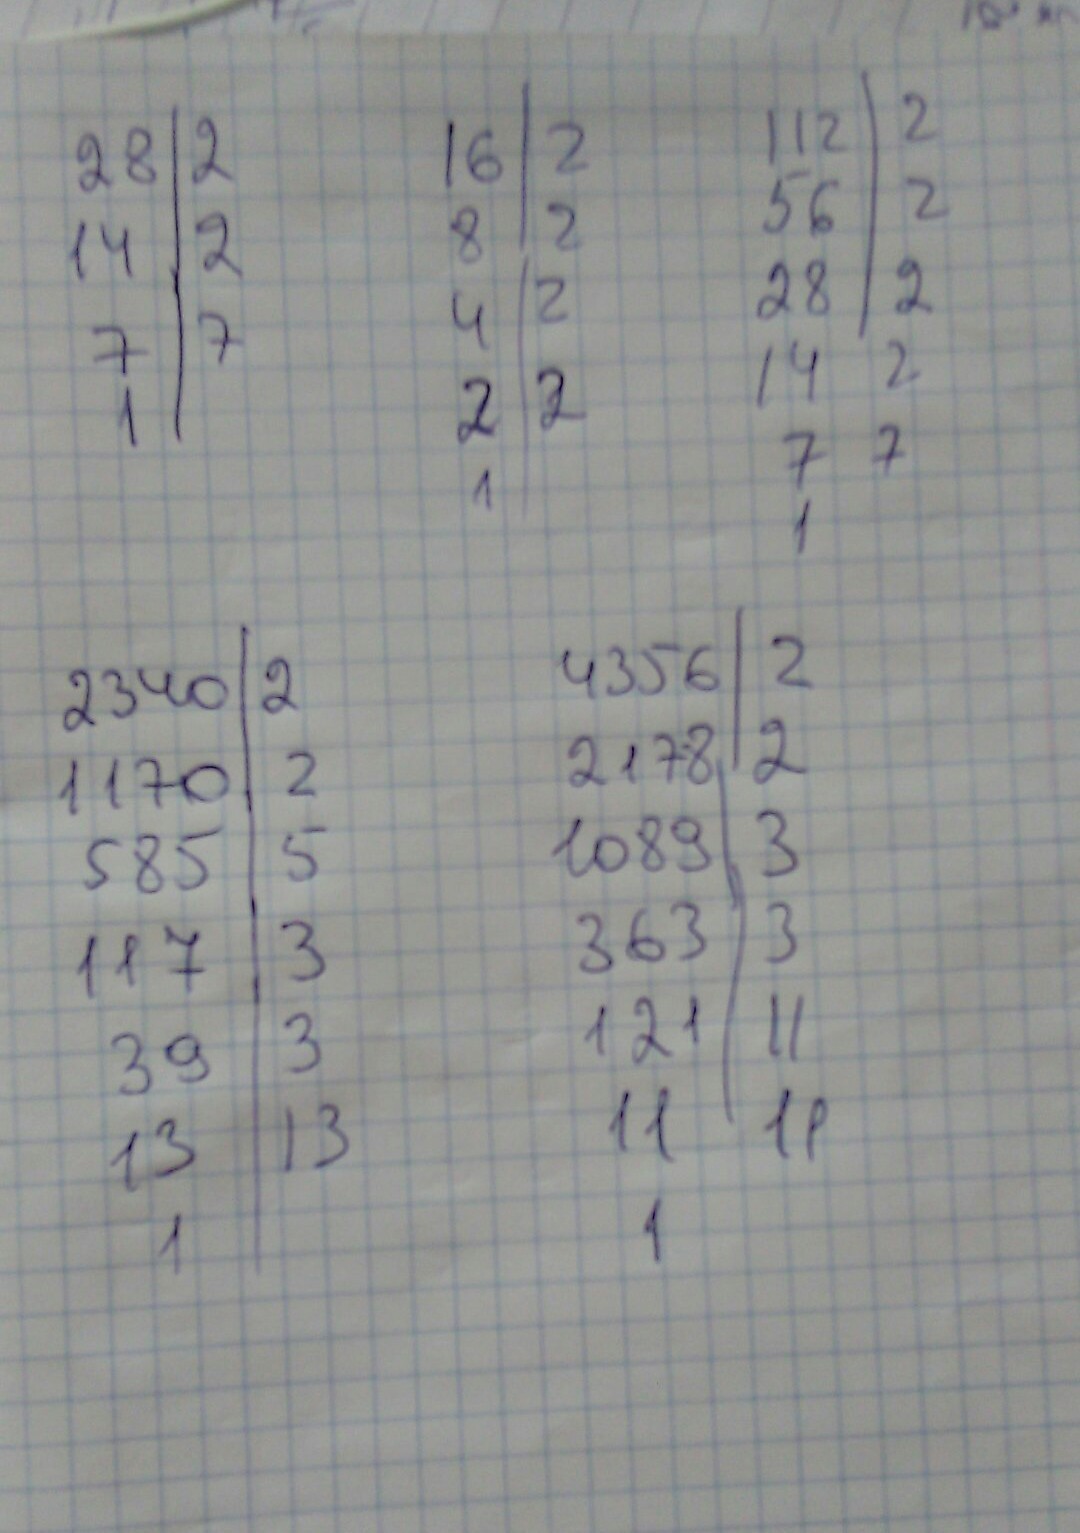 28 2
14 2
7 7
1
16 2
8 2
4 2
2 2
1
112 2
56 2
28 2
14 2
7 7
1
2340 2
1170 2
585 5
117 3
39 3
13 13
1
4356 2
2178 2
1089 3
363 3
121 11
11 11
1